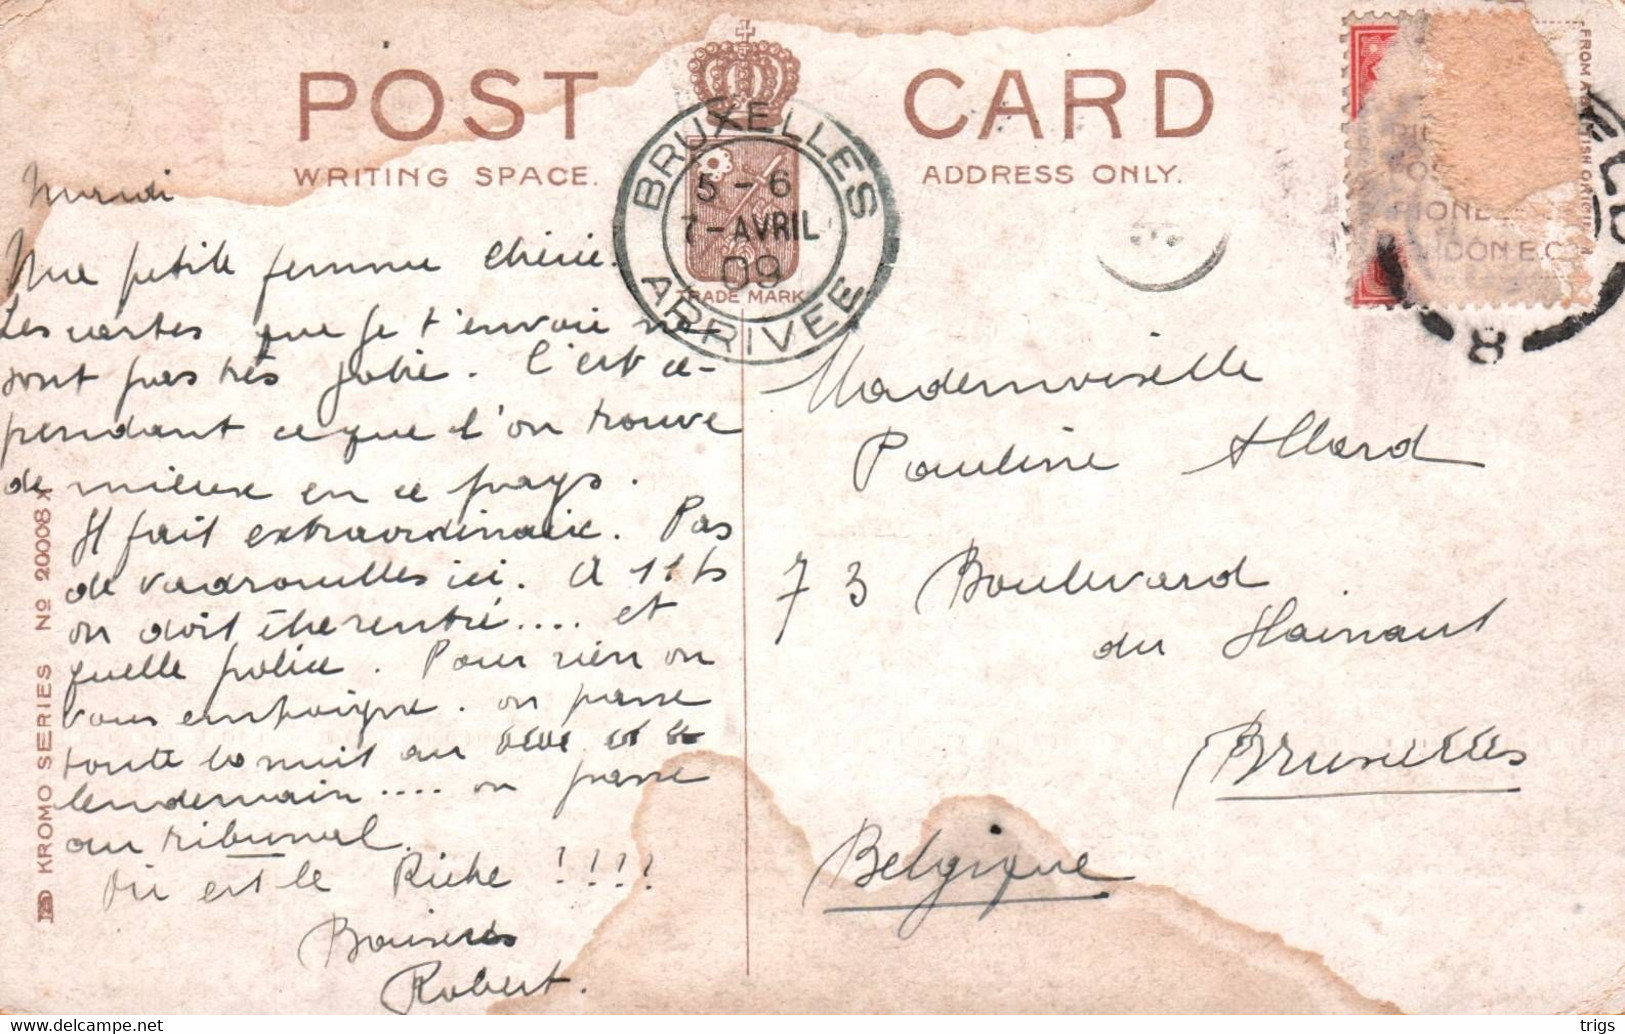 POST CARD
WRITING SPACE.
ADDRESS ONLY.
TRADE MARK
BRUXELLES
5-6
7-AVRIL
09
ARRIVEE
FROM A
ISH ORIGI
DON E.C.
8
KROMO SERIES Nº 20008
Mardi
Ma petite femme chérie.
Les cartes que je t'envoie ne
sont pas très jolie. C'est ce-
pendant ce que l'on trouve
de mieux en ce pays.
Il fait extraordinaire. Pas
de vadrouilles ici. A 11 hs
on doit être rentré.... et
quelle police. Pour rien on
vous empoigne. on passe
toute la nuit au et le
lendemain.... on passe
au tribunal.
Où est le Riche !!!!
Baisers
Robert.
Mademoiselle
Pauline Allard
73 Boulevard
du Hainaut
Bruxelles
Belgique
trigs
delcampe.net